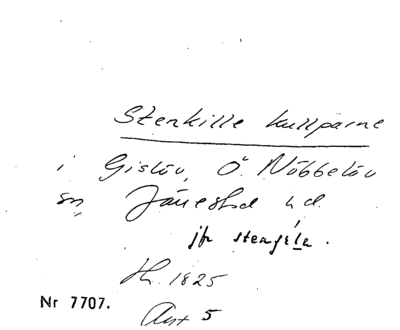 Stenkille kullparne
i Gislöv, Ö. Nöbbelöv
sn, Järrestad hd.
jfr stengéla.
Th. 1825
Ant 5
Nr 7707.